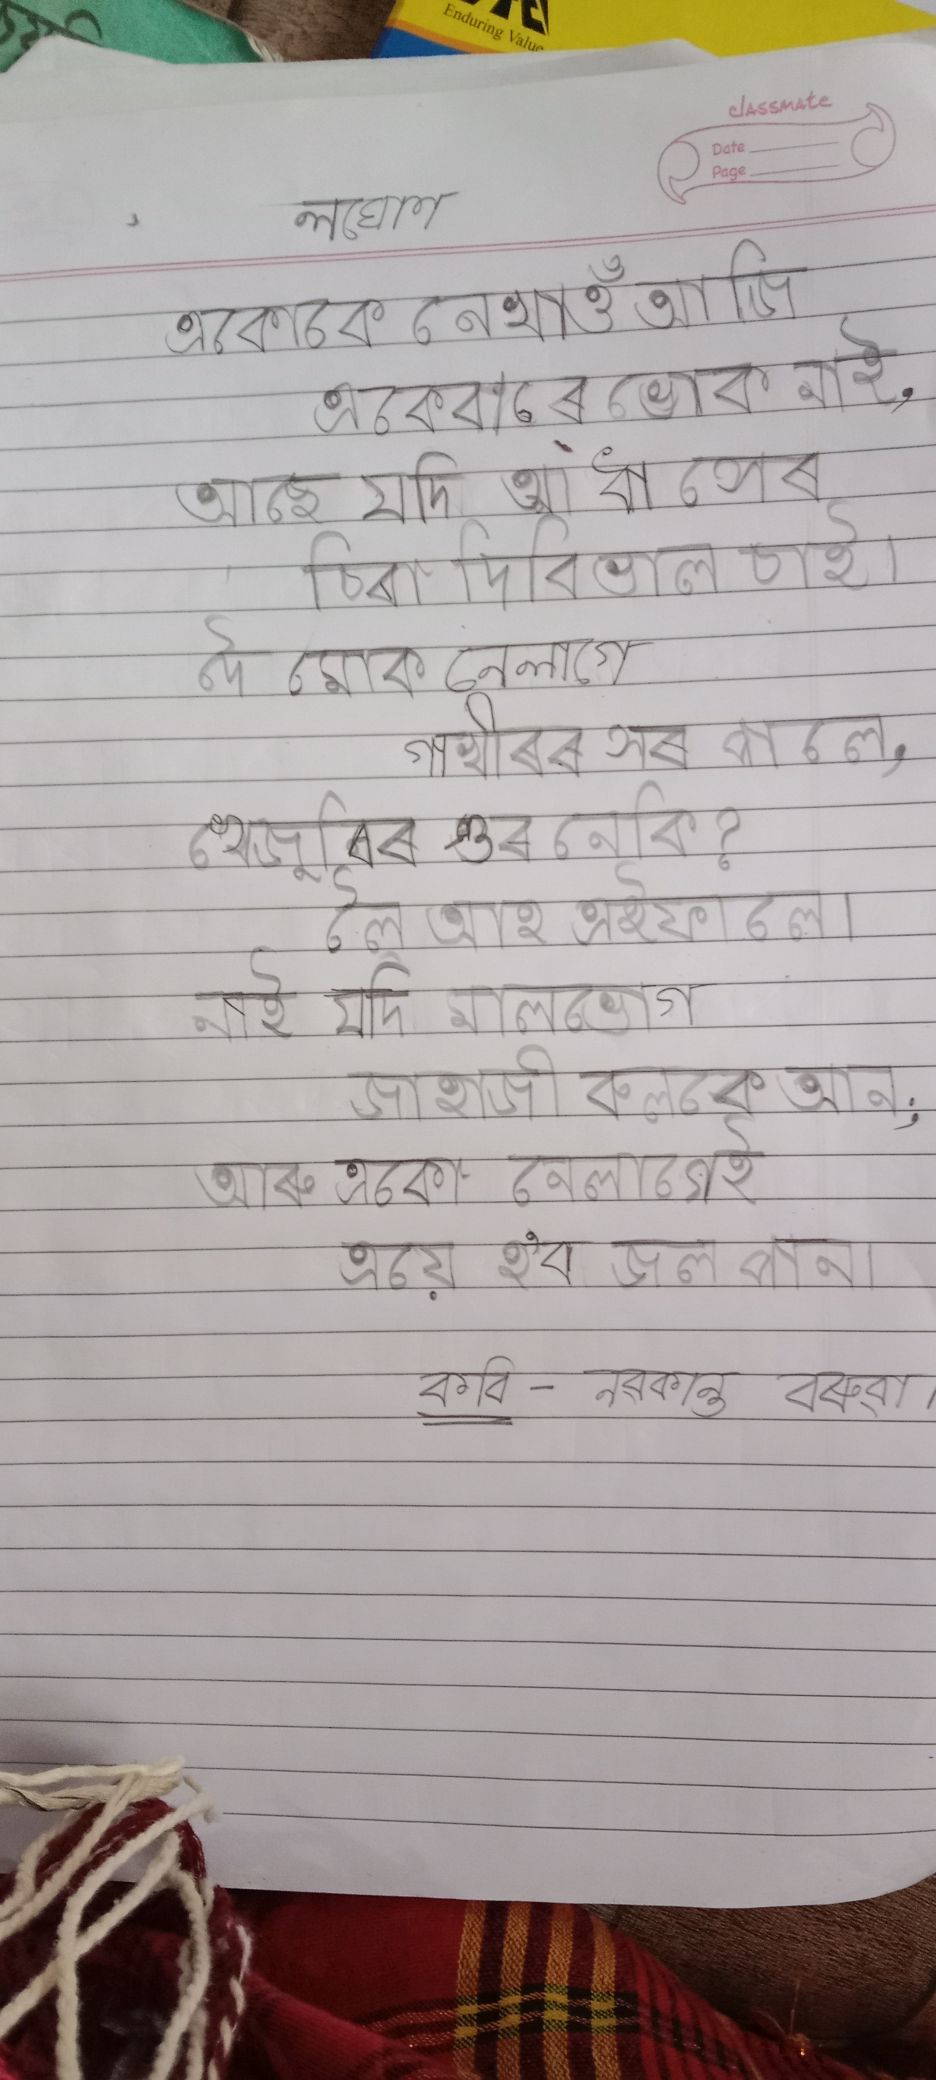 Enduring Value
classmate
Date
Page
লঘোণ
একোকে নেখাওঁ আজি
একেবাৰে ভোক নাই,
আছে যদি আধা সেৰ
চিৰা দিবি ভাল চাই।
দৈ মোক নেলাগে
গাখীৰৰ সৰ পালে,
খেজুৰিৰ গুৰ নেকি?
লৈ আহ এইফালে।
নাই যদি মালভোগ
জাহাজী কলকে আন;
আৰু একো নেলাগেই
এয়ে হ'ব জল পান।
কবি - নৱকান্ত বৰুৱা।